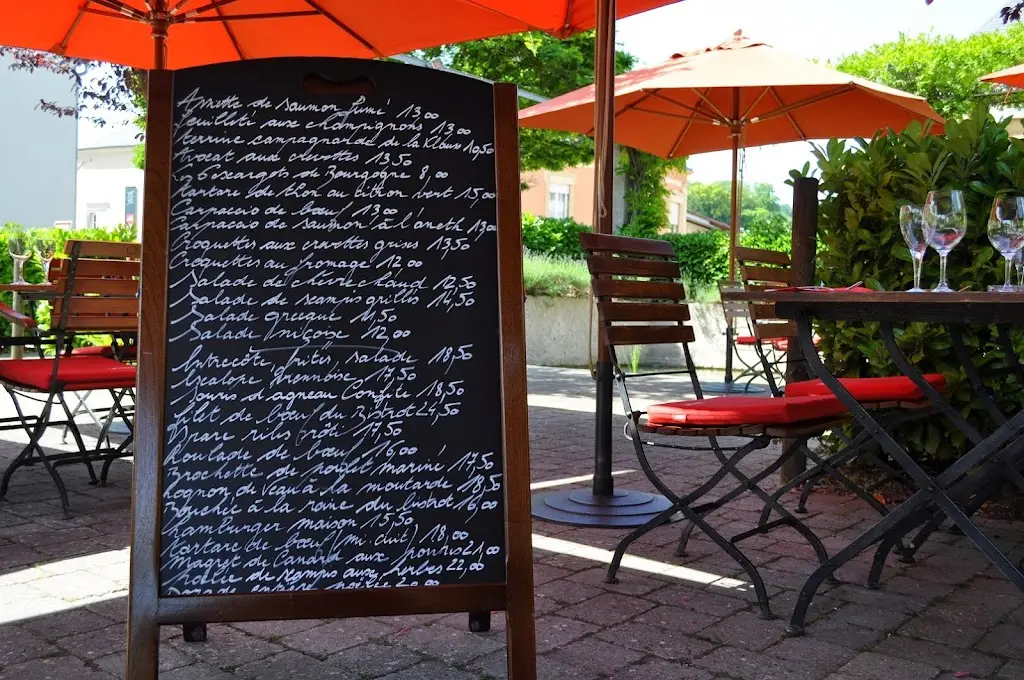 Assiette de saumon fumé 13,00
Feuilleté aux champignons 13,00
Terrine campagnarde de la Klauss 10,50
Avocat aux crevettes 13,50
Les 6 escargots de Bourgogne 8,00
Tartare de thon au citron vert 15,00
Carpaccio de bœuf 13,00
Carpaccio de saumon à l'aneth 13,00
Croquettes aux crevettes grises 13,50
Croquettes au fromage 12,00
Salade de chèvre chaud 12,50
Salade de scampis grillés 14,50
Salade grecque 11,50
Salade niçoise 12,00
Entrecôte, frites, salade 18,50
Escalope Viennoise 17,50
Souris d'agneau Confite 18,50
Filet de bœuf du Bistrot 24,50
Spare ribs rôti 17,50
Roulade de bœuf 16,00
Brochette de poulet mariné 17,50
Rognon de Veau à la moutarde 18,50
Bouchée à la reine du bistrot 16,00
Hamburger maison 15,50
Tartare de bœuf (mi-cuit) 18,00
Magret de Canard aux 21,00
Poêlée de scampis aux herbes 22,00
entière 20,00